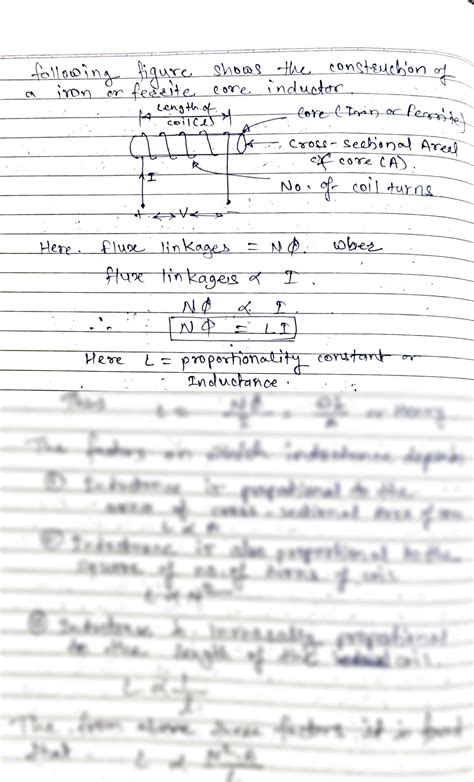 following figure shows the construction of
a iron or ferrite core inductor.
Length of
coil (l)
core (Iron or Ferrite)
cross-sectional Area
of core (A).
I
No. of coil turns
+ V -
Here. flux linkages = NΦ. wber
flux linkages ∝ I.
NΦ ∝ I.
∴ NΦ = LI
Here L = proportionality constant or
Inductance.
Thus L = NΦ/I
The factors on which inductance depends
① Inductance is propotional to the
area of cross-sectional area of
L ∝ A
② Inductance is also propotional to the
square of no. of turns of coil
L ∝ N²
③ Inductance is inversely propotional
to the length of the coil.
L ∝ 1/l
The from above these factors it is found
that L ∝ N².A/l